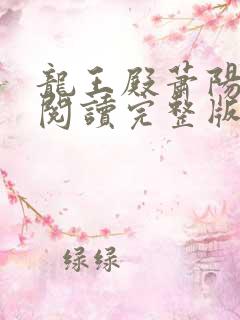 龍王殿蕭陽
閱讀完整版
绿绿